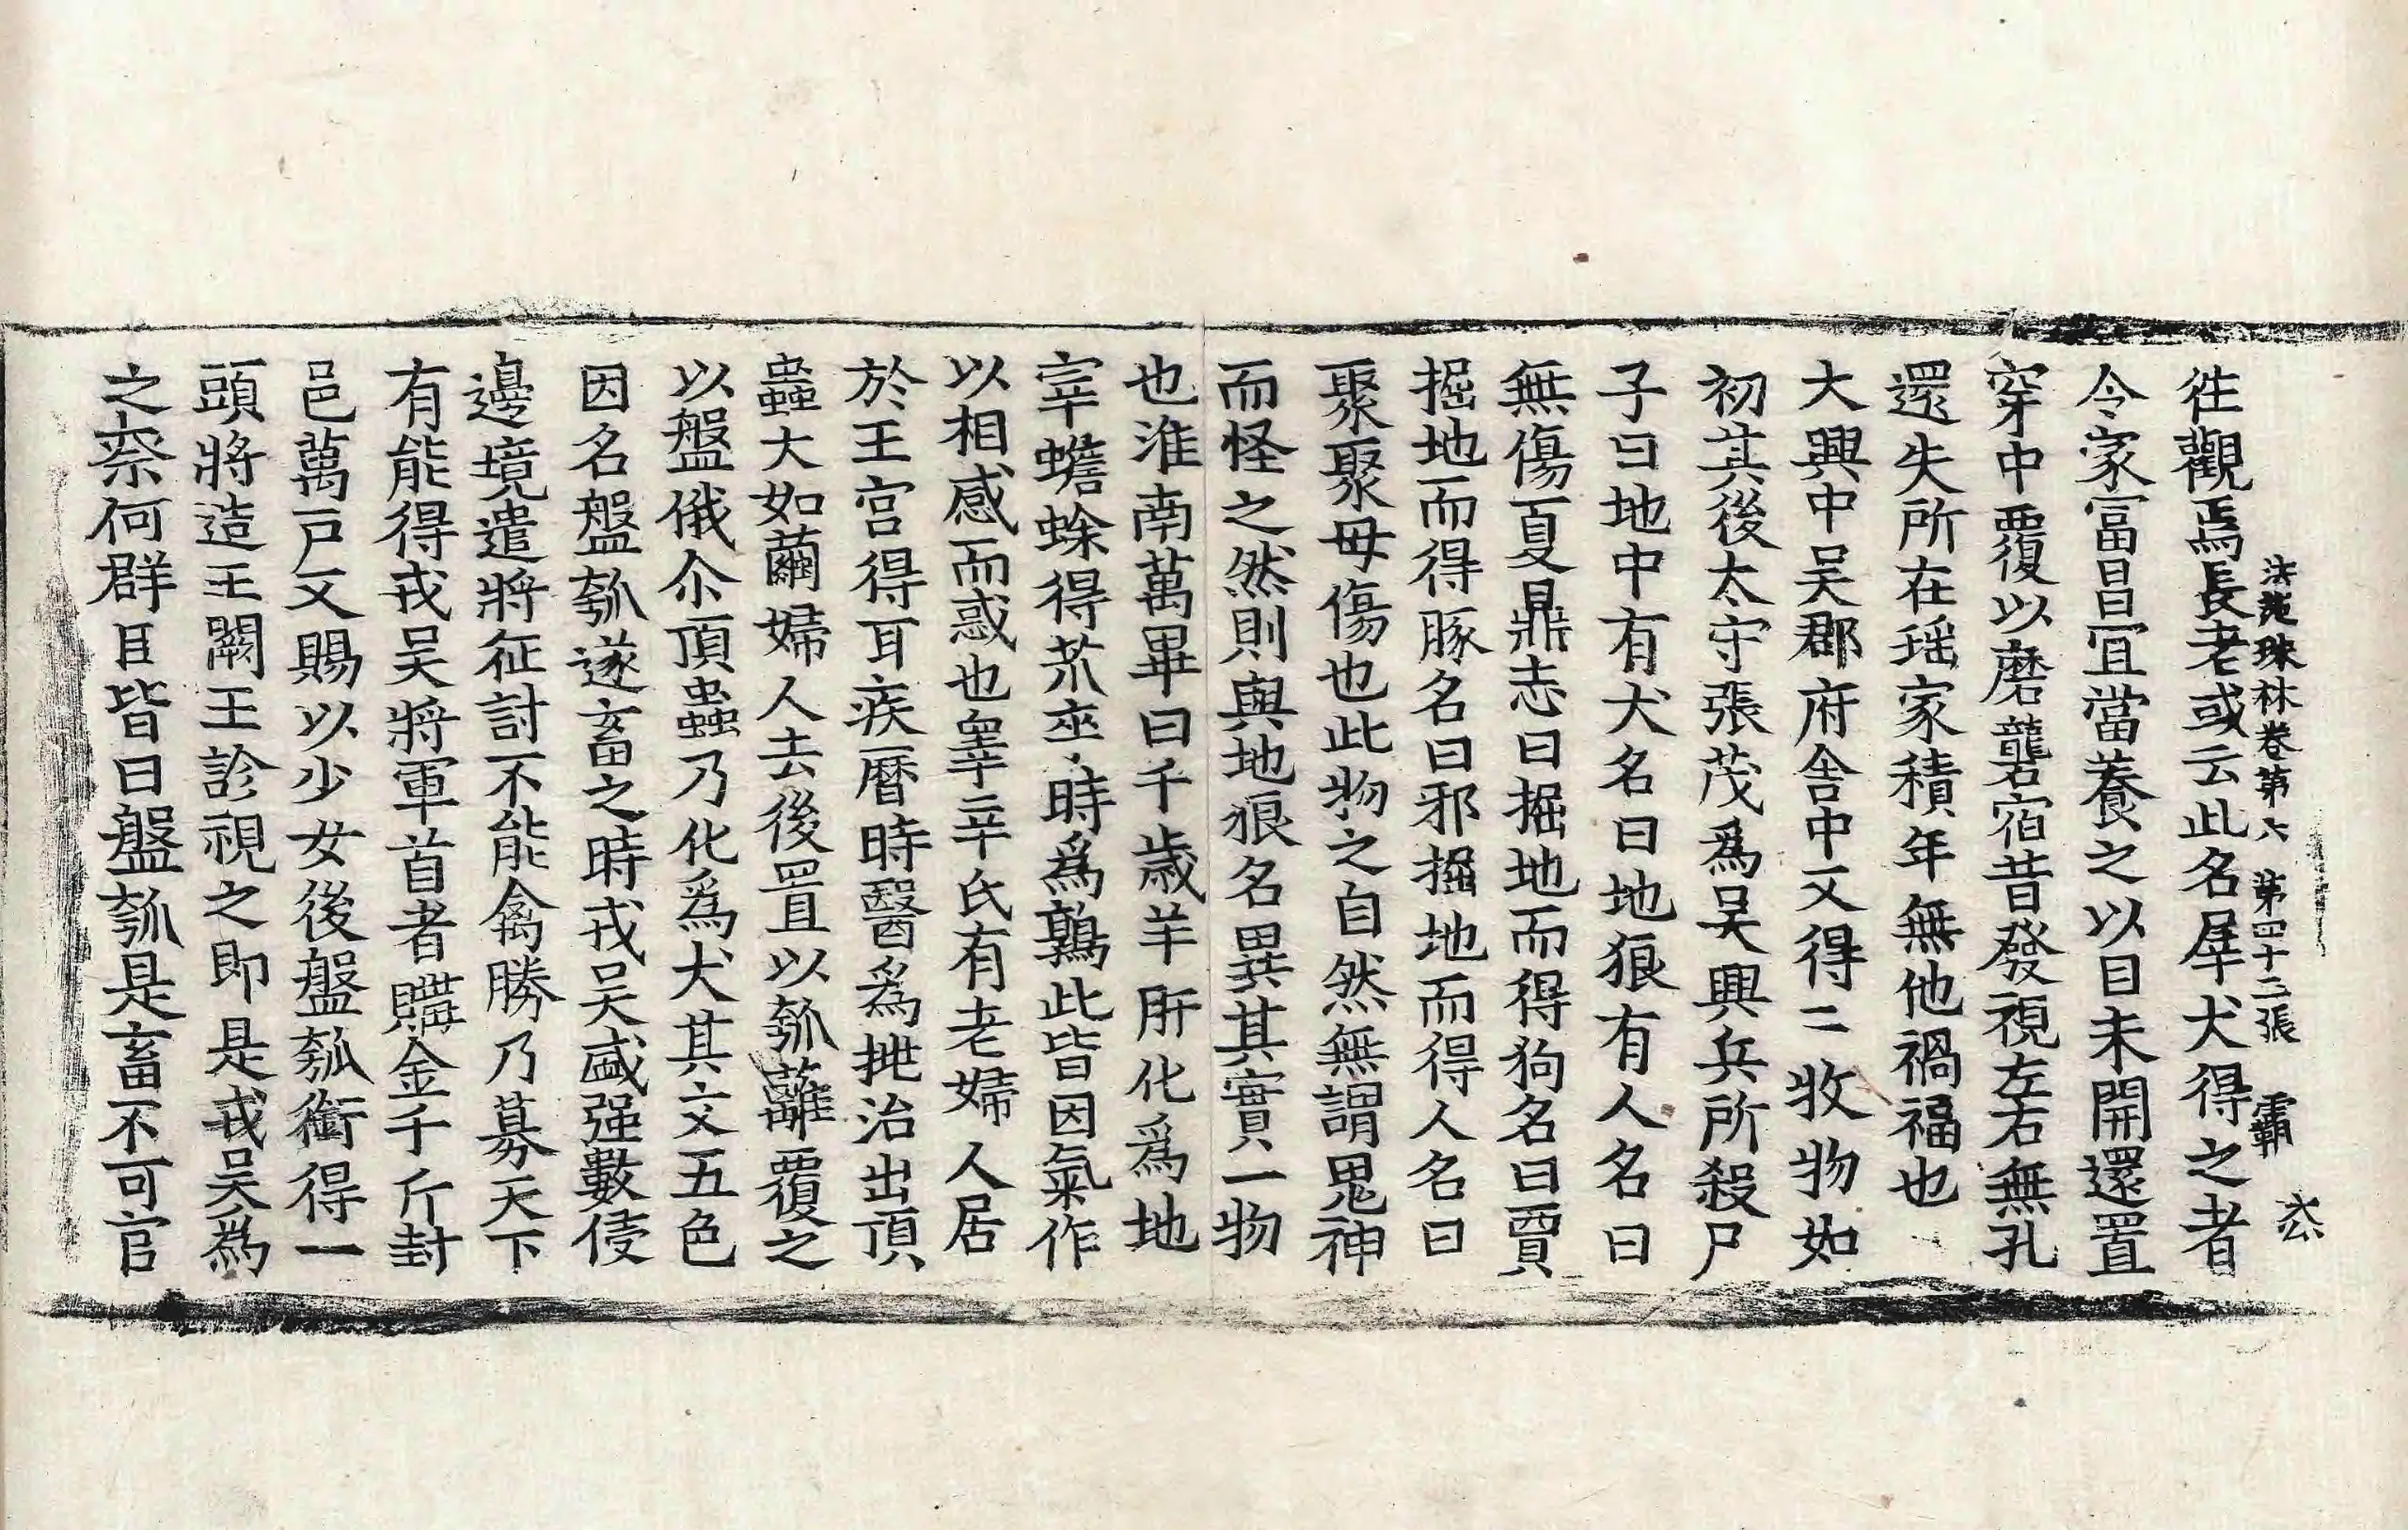 法苑珠林卷第六　第四十二張　霸
徃觀焉長老或云此名犀犬得之者
令家富昌宜當養之以目未開還置
穿中覆以磨礱宿昔發視左右無孔
還失所在瑶家積年無他禍福也
大興中吴郡府舍中又得二牧物如
初其後太守張茂爲吴興兵所殺尸
子曰地中有犬名曰地狼有人名曰
無傷夏鼎志曰掘地而得狗名曰賈
掘地而得豚名曰邪掘地而得人名曰
聚聚毋傷也此物之自然無謂鬼神
而怪之然則與地狼名異其實一物
也淮南萬畢曰千歳羊肝化爲地
宰蟾蜍得苽卒時爲鶉此皆因氣作
以相感而惑也睾辛氏有老婦人居
於王宫得耳疾曆時醫爲挑治出頂
蟲大如繭婦人去後置以瓠蘺覆之
以盤俄尒頂蟲乃化爲犬其文五色
因名盤瓠遂畜之時戎吴盛强數侵
邊境遣將征討不能禽勝乃募天下
有能得戎吴將軍首者購金千斤封
邑萬戸又賜以少女後盤瓠銜得一
頭將造王闕王診視之即是戎吴爲
之柰何群臣皆曰盤瓠是畜不可官